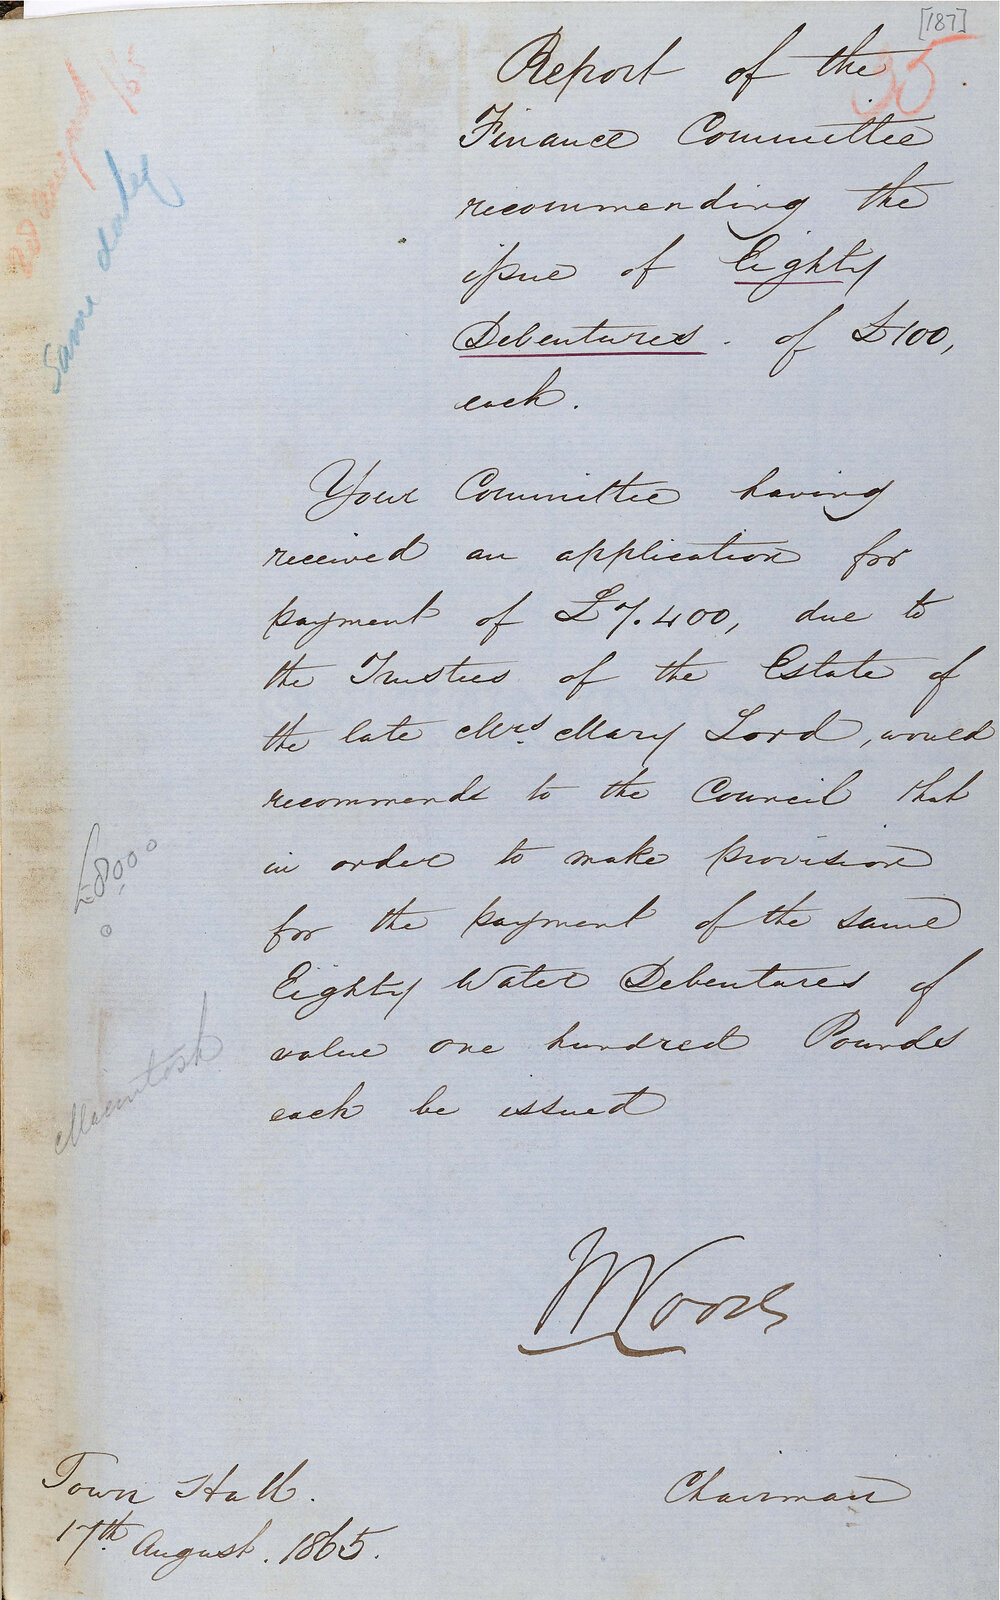 [187]
35
Report of the
Finance Committee
recommending the
issue of Eighty
Debentures. of £100,
each.
Same date
Your Committee having
received an application for
payment of £7.400, due to
the Trustees of the Estate of
the late Mrs. Mary Lord, would
recommends to the Council that
in order to make provision
for the payment of the same
Eighty Water Debentures of
value one hundred Pounds
each be issued
£8000
Macintosh
M Woods
Chairman
Town Hall.
17th. August. 1865.